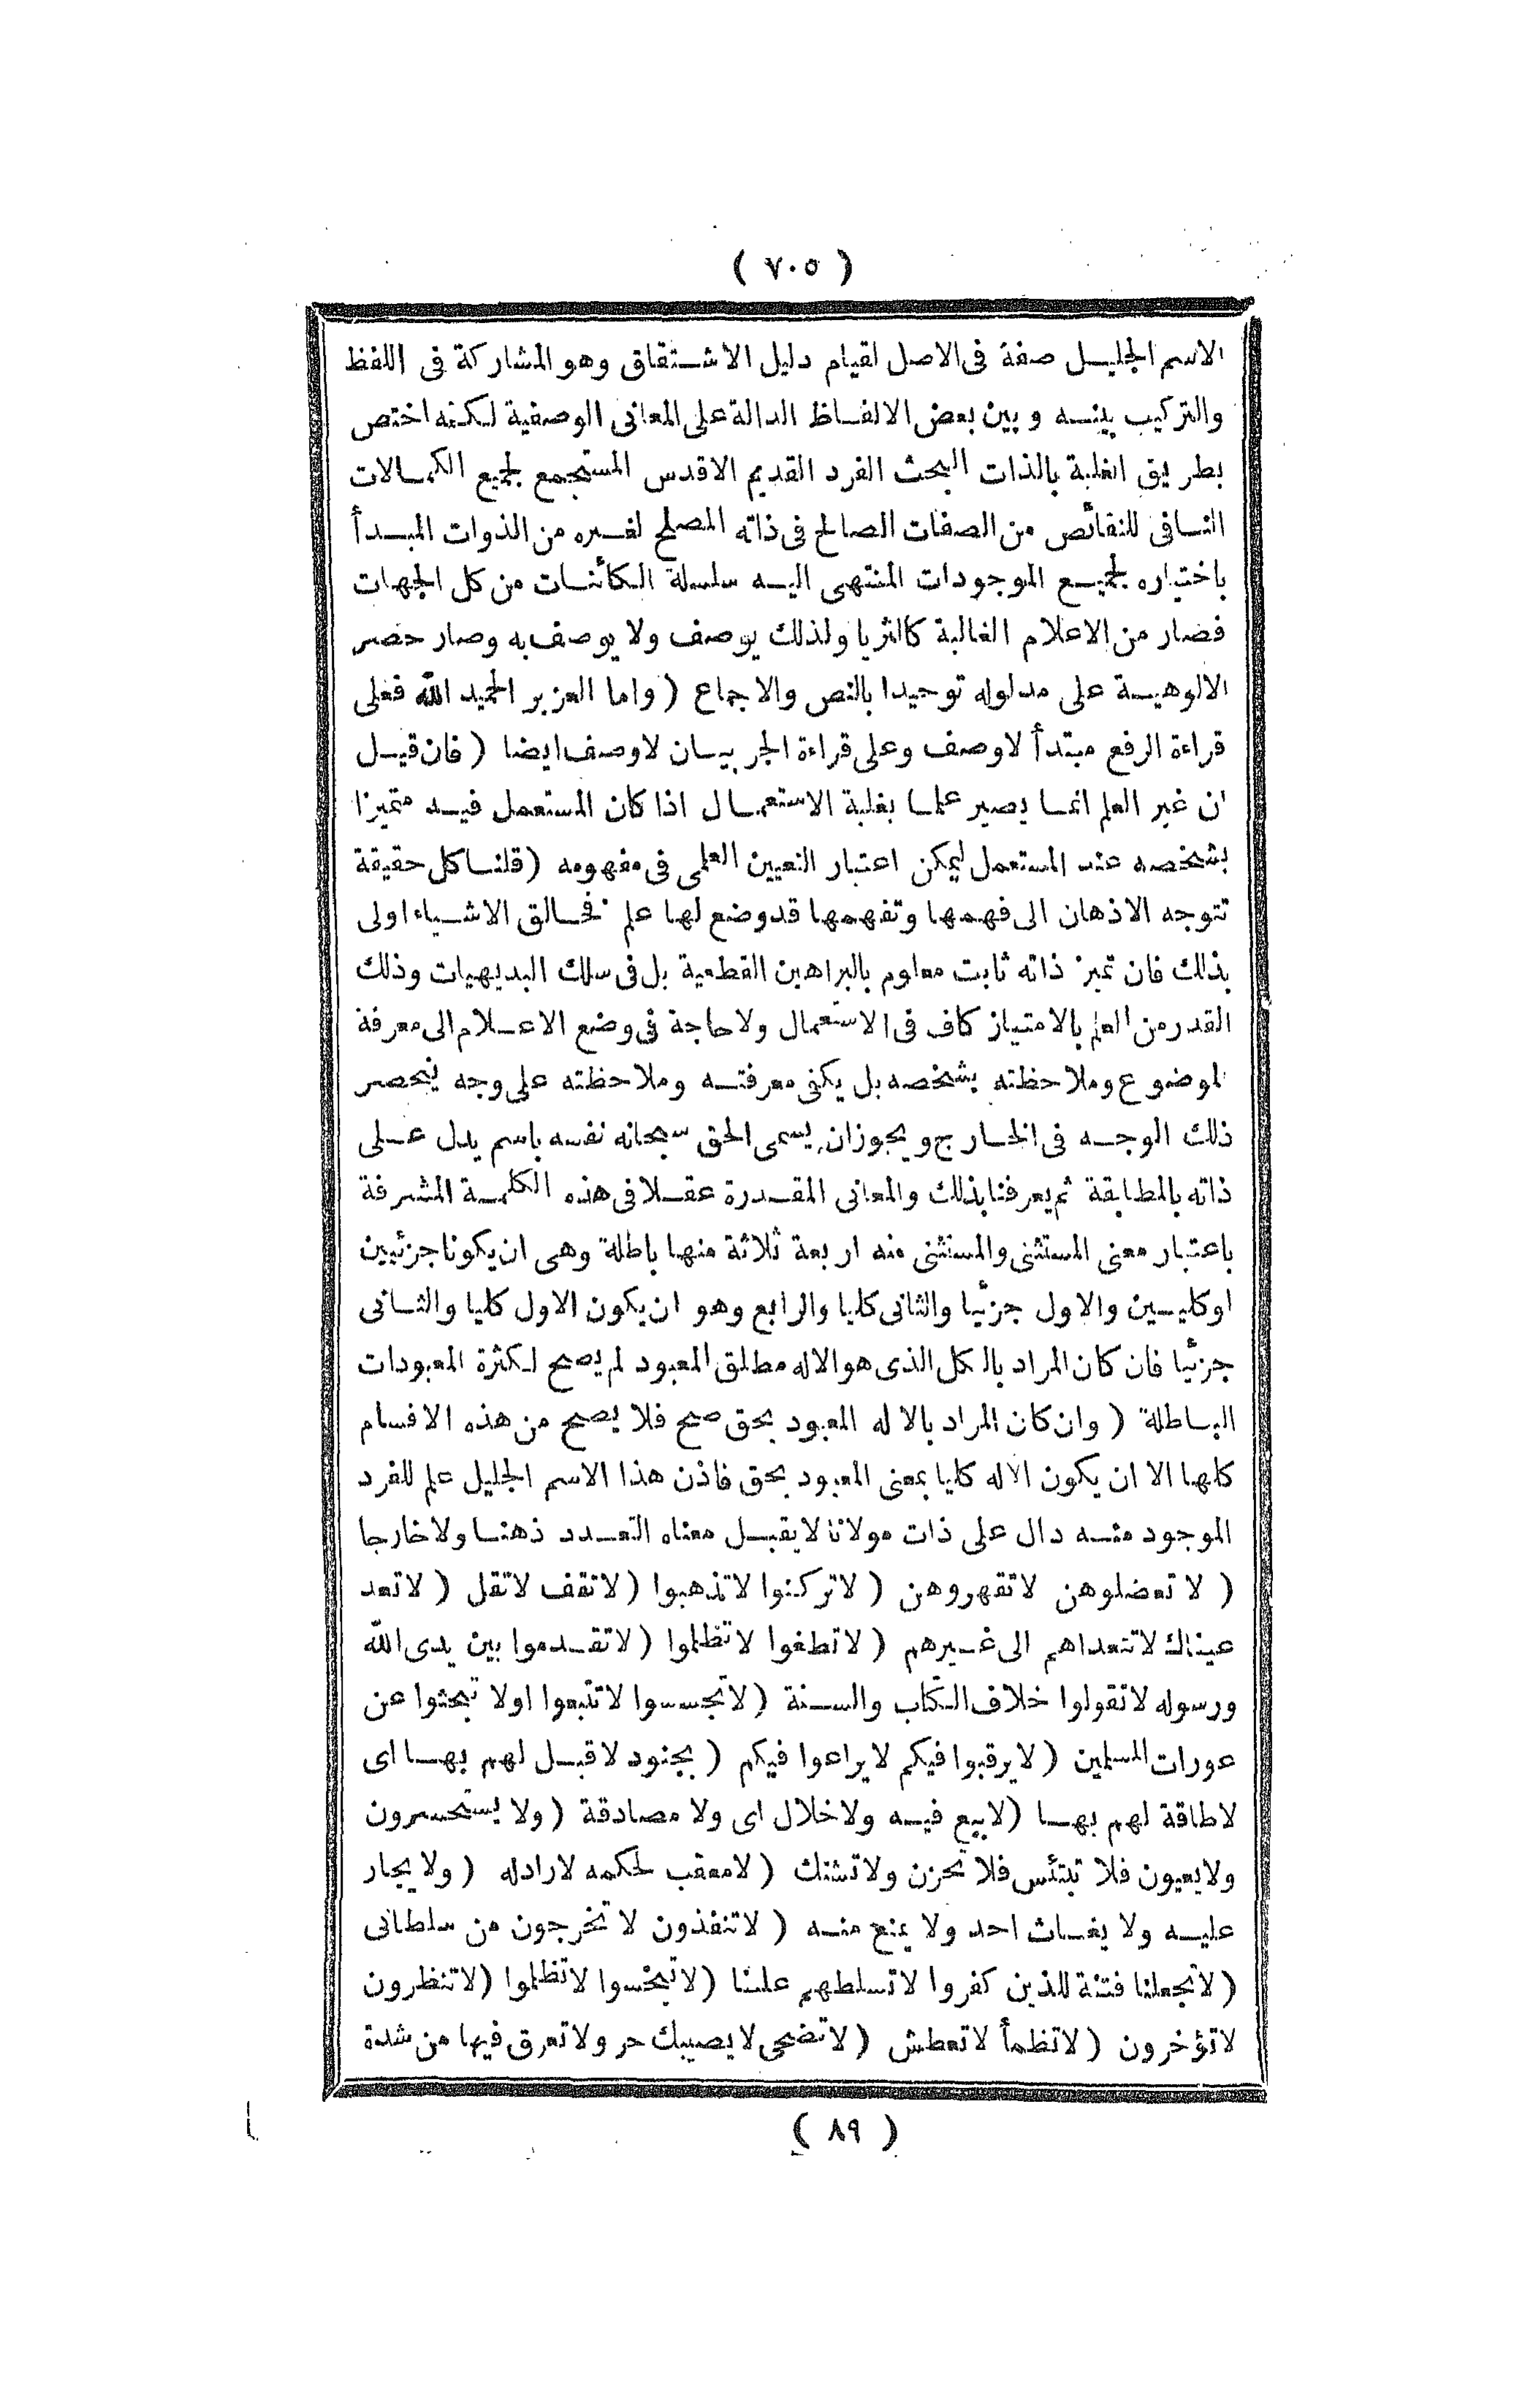 ( ٧٠٥ )
الاسم الجليل صفة فى الاصل لقيام دليل الاشتقاق وهو المشاركة فى اللفظ
والتركيب بينه وبين بعض الالفاظ الدالة على المعانى الوصفية لكنه اختص
بطريق الغلبة بالذات البحث الفرد القديم الاقدس المستجمع لجميع الكمالات
النافى للنقائص من الصفات الصالح فى ذاته المصلح لغيره من الذوات المبدأ
باختياره لجميع الموجودات المنتهى اليه سلسلة الكائنات من كل الجهات
فصار من الاعلام الغالبة كالثريا ولذلك يوصف ولا يوصف به وصار حصر
الالوهية على مدلوله توحيدا بالنص والاجماع ( واما العزيز الحميد الله فعلى
قراءة الرفع مبتدأ لاوصف وعلى قراءة الجر بيان لاوصف ايضا ( فان قيل
ان غير العلم انما يصير علما بغلبة الاستعمال اذا كان المستعمل فيه متميزا
بشخصه عند المستعمل ليمكن اعتبار التعيين العلمى فى مفهومه ( قلنا كل حقيقة
تتوجه الاذهان الى فهمها وتفهمها قد وضع لها علم فخالق الاشياء اولى
بذلك فان تميز ذاته ثابت معلوم بالبراهين القطعية بل فى سلك البديهيات وذلك
القدر من العلم بالامتياز كاف فى الاستعمال ولا حاجة فى وضع الاعلام الى معرفة
الموضوع وملاحظته بشخصه بل يكفى معرفته وملاحظته على وجه ينحصر
ذلك الوجه فى الخارج ويجوز ان يسمى الحق سبحانه نفسه باسم يدل على
ذاته بالمطابقة ثم يعرفنا بذلك والمعانى المقدرة عقلا فى هذه الكلمة المشرفة
باعتبار معنى المستثنى والمستثنى منه اربعة ثلاثة منها باطلة وهى ان يكونا جزئيين
اوكليين والاول جزئيا والثانى كليا والرابع وهو ان يكون الاول كليا والثانى
جزئيا فان كان المراد بالكل الذى هو الاله مطلق المعبود لم يصح لكثرة المعبودات
الباطلة ( وان كان المراد بالاله المعبود بحق صح فلا يصح من هذه الاقسام
كلها الا ان يكون الاله كليا بمعنى المعبود بحق فاذن هذا الاسم الجليل علم للفرد
الموجود منه دال على ذات مولانا لا يقبل معناه التعدد ذهنا ولا خارجا
( لا تعضلوهن لا تقهروهن ( لا تركنوا لا تذهبوا ( لا تقف لا تقل ( لا تعد
عيناك لا تتعداهم الى غيرهم ( لا تطغوا لا تظلموا ( لا تقدموا بين يدى الله
ورسوله لا تقولوا خلاف الكتاب والسنة ( لا تجسسوا لا تتبعوا اولا تبحثوا عن
عورات المسلمين ( لا يرقبوا فيكم لا يراعوا فيكم ( بجنود لا قبل لهم بها اى
لا طاقة لهم بها ( لا بيع فيه ولا خلال اى ولا مصادقة ( ولا يستحسرون
ولا يعيون فلا تبتئس فلا تحزن ولا تشتك ( لا معقب لحكمه لا رادله ( ولا يجار
عليه ولا يغاث احد ولا يمنع منه ( لا تنفذون لا تخرجون من سلطانى
( لا تجعلنا فتنة للذين كفروا لا تسلطهم علنا ( لا تبخسوا لا تظلموا ( لا تنظرون
لا تؤخرون ( لا تظمأ لا تعطش ( لا تضحى لا يصيبك حر ولا تعرق فيها من شدة
( ٨٩ )